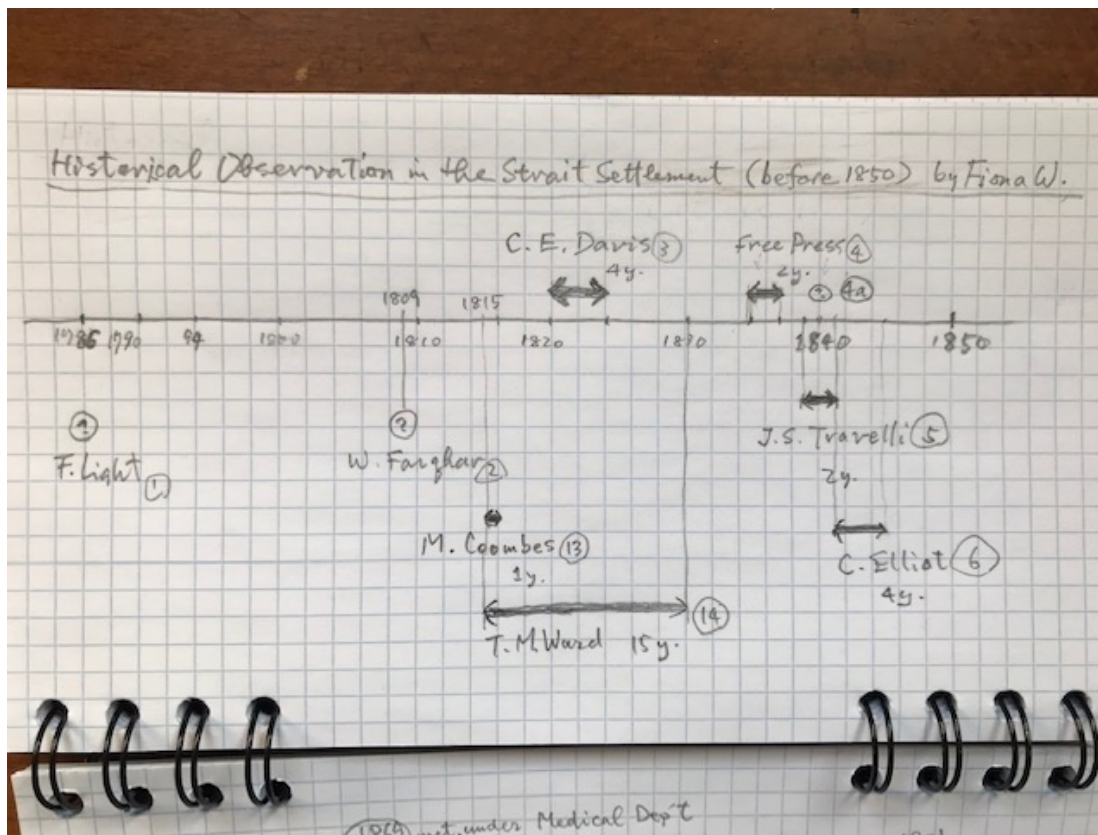 Historical Observation in the Strait Settlement (before 1850) by Fiona W.
C. E. Davis ③ free Press ④
4y. 2y.
1809 1815 ? 4a
1786 1790 94 1800 1810 1820 1830 1840 1850
? ?
F. Light ① W. Farqhar ② J.S. Travelli ⑤
2y.
M. Coombes ⑬ C. Elliot ⑥
1y. 4y.
⑭
T. M. Ward 15y.
not under Medical Dep't